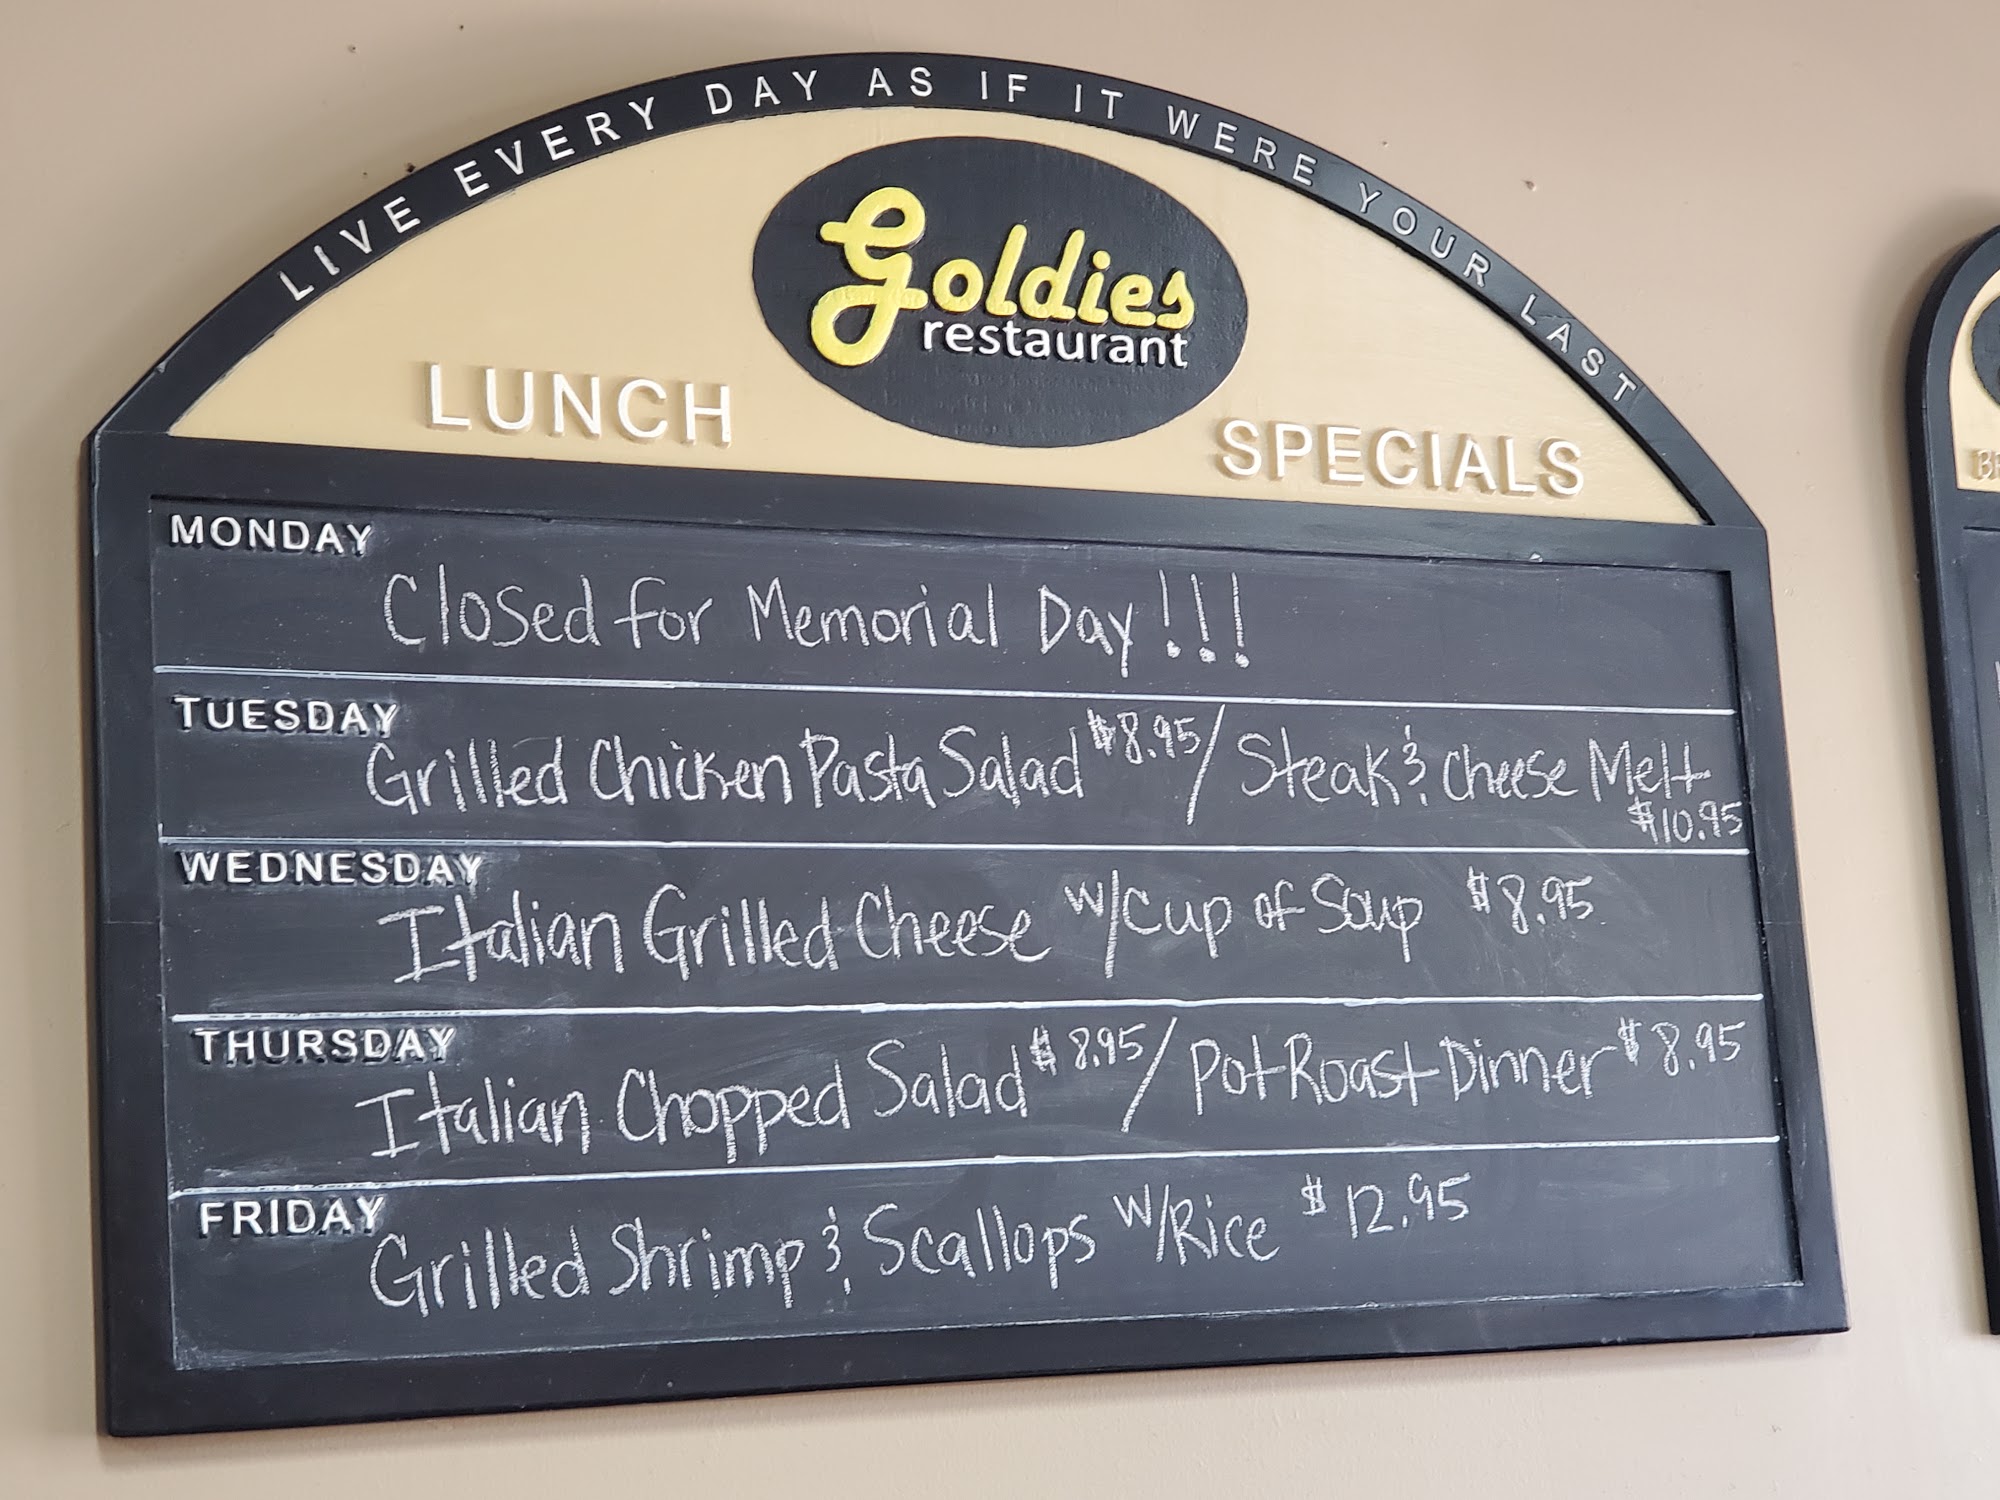 LIVE EVERY DAY AS IF IT WERE YOUR LAST
Goldies
restaurant
LUNCH SPECIALS
MONDAY
Closed for Memorial Day!!!
TUESDAY
Grilled Chicken Pasta Salad $8.95/ Steak & Cheese Melt
$10.95
WEDNESDAY
Italian Grilled Cheese w/Cup of Soup $8.95
THURSDAY
Italian Chopped Salad $8.95/ Pot Roast Dinner $8.95
FRIDAY
Grilled Shrimp & Scallops w/Rice $12.95